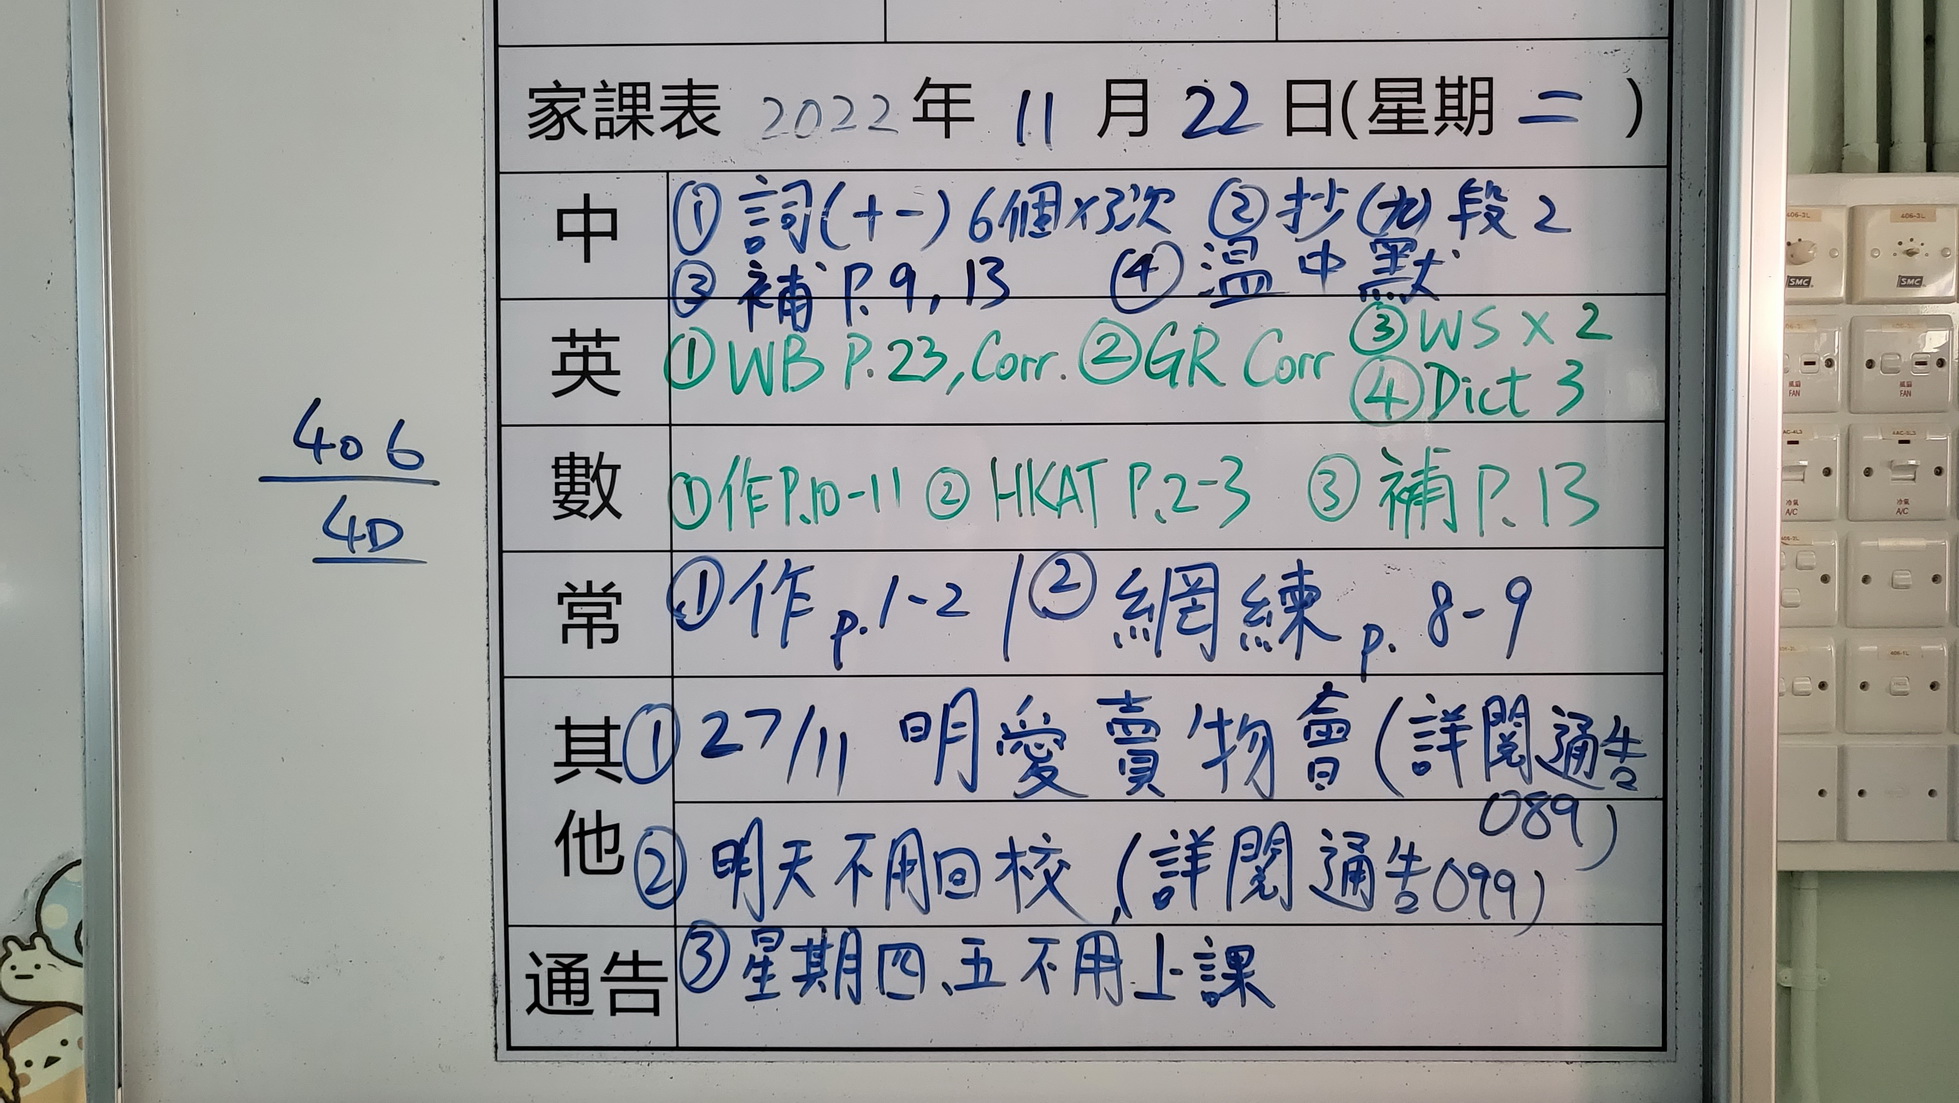 家課表 2022 年 11 月 22 日(星期 二 )
中
① 詞(十一) 6個×3次 ② 抄(九) 段 2
③ 補 P.9, 13 ④ 溫中默
英
① WB P.23, Corr. ② GR Corr ③ WS × 2
④ Dict 3
數
① 作 P.10-11 ② HKAT P.2-3 ③ 補 P.13
常
① 作 p.1-2 / ② 網練 p. 8-9
其他
① 27/11 明愛賣物會 (詳閱通告
089)
② 明天不用回校 (詳閱通告099)
通告
③ 星期四、五不用上課
406
4D
SMC
SMC
風扇
FAN
風扇
FAN
冷氣
A/C
冷氣
A/C